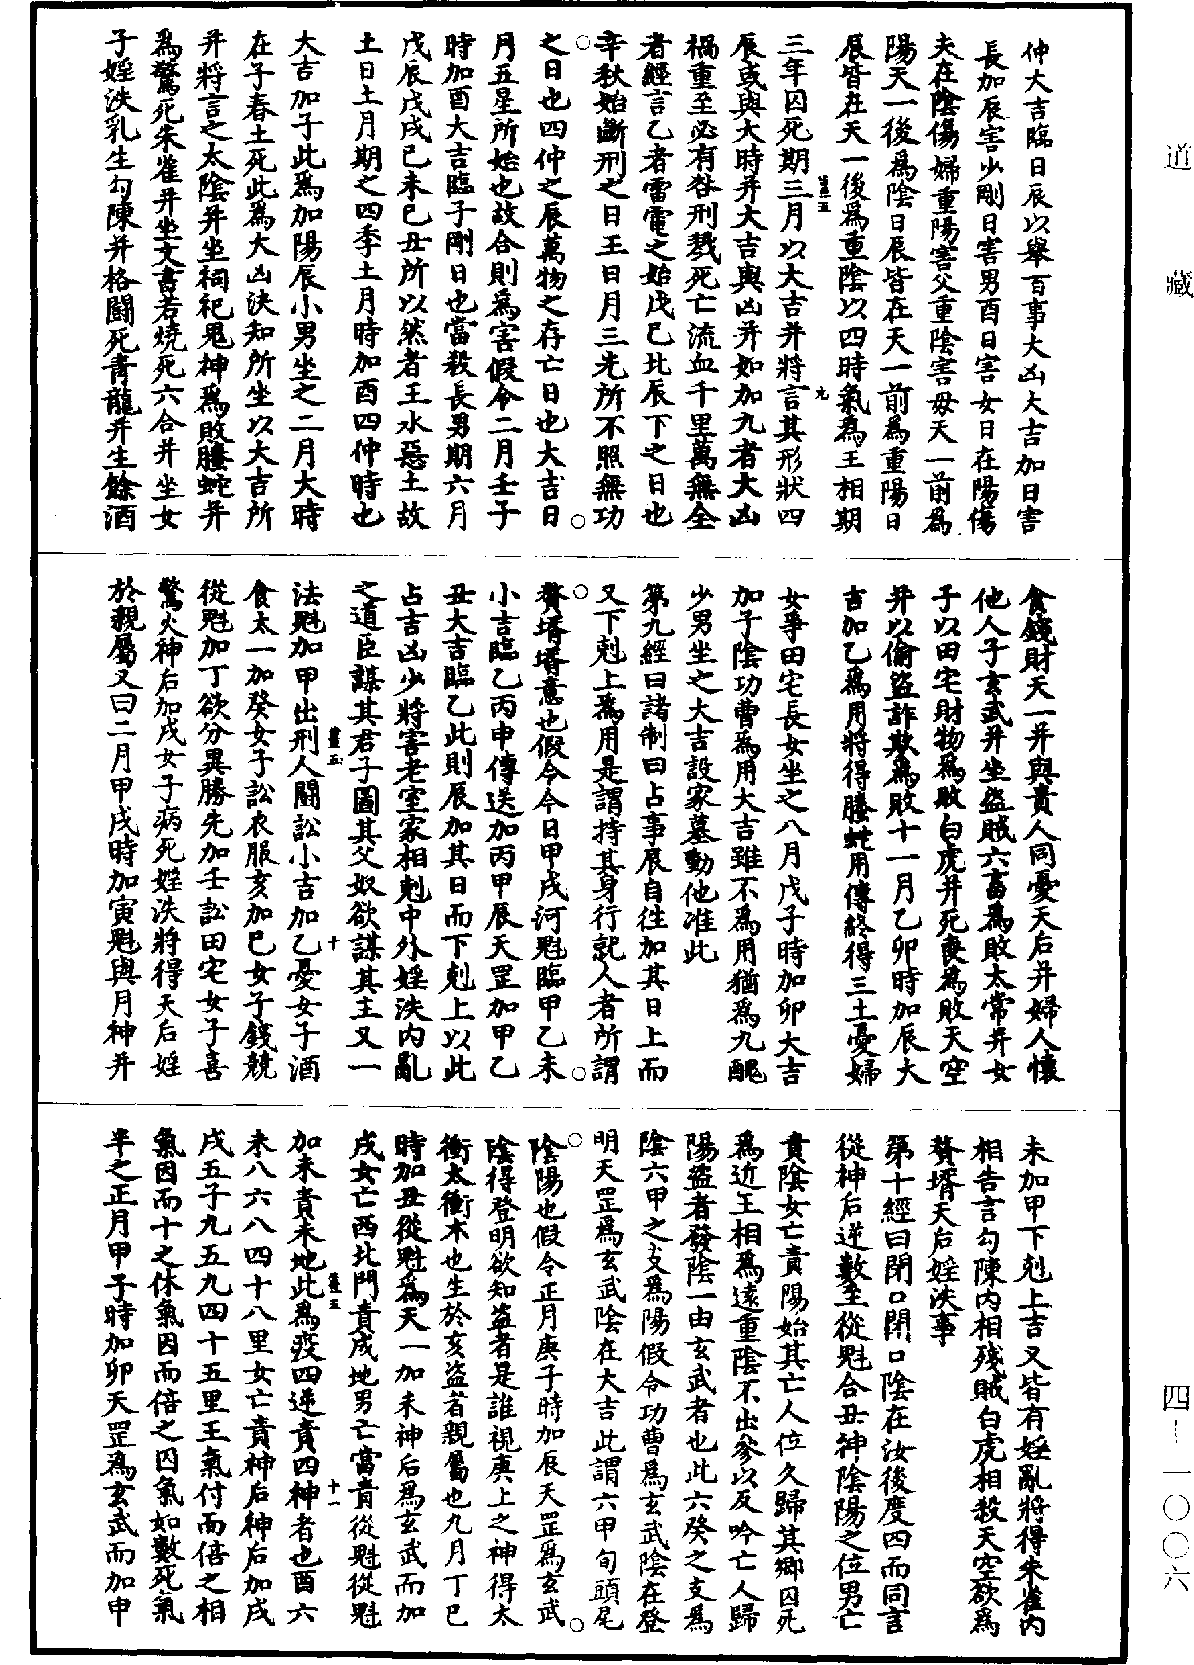 道藏
四-一〇〇六
仲大吉臨日辰以舉百事大凶大吉加日害
長加辰害少剛日害男酉日害女日在陽傷
夫在陰傷婦重陽害父重陰害母天一前為
陽天一後為陰日辰皆在天一前為重陽日
辰皆在天一後為重陰以四時氣為王相期
三年囚死期三月以大吉并將言其形狀四
辰或與大時并大吉與凶并如加九者大凶
禍重至必有咎刑戮死亡流血千里萬無全
者經言乙者雷電之始戊己北辰下之日也
辛秋始斷刑之日王日月三光所不照無功
之日也四仲之辰萬物之存亡日也大吉日
月五星所始也故合則為害假令二月壬子
時加酉大吉臨子剛日也當殺長男期六月
戊辰戊戌己未己丑所以然者王水惡土故
土日土月期之四季土月時加酉四仲時也
大吉加子此為加陽辰小男坐之二月大時
在子春土死此為大凶決知所坐以大吉所
并將言之太陰并坐祠祀鬼神為敗螣蛇并
為驚死朱雀并坐文書若燒死六合并坐女
子婬泆乳生勾陳并格鬪死青龍并生餘酒
食錢財天一并與貴人同憂天后并婦人懷
他人子玄武并坐盜賊六畜為敗太常并女
子以田宅財物為敗白虎并死喪為敗天空
并以偷盜詐欺為敗十一月乙卯時加辰大
吉加乙為用將得螣蛇用傳終得三土憂婦
女事田宅長女坐之八月戊子時加卯大吉
加子陰功曹為用大吉雖不為用猶為九醜
少男坐之大吉設家墓動他准此
第九經曰諸制曰占事辰自往加其日上而
又下剋上為用是謂持其身行就人者所謂
贅壻壻意也假令今日甲戌河魁臨甲乙未
小吉臨乙丙申傳送加丙甲辰天罡加甲乙
丑大吉臨乙此則辰加其日而下剋上以此
占吉凶少將害老室家相剋中外婬泆內亂
之道臣謀其君子圖其父奴欲謀其主又一
法魁加甲出刑人鬪訟小吉加乙憂女子酒
食太一加癸女子訟衣服亥加巳女子錢競
從魁加丁欲分異勝先加壬訟田宅女子喜
驚火神后加戌女子病死婬泆將得天后婬
於親屬又曰二月甲戌時加寅魁與月神并
未加甲下剋上吉又皆有婬亂將得朱雀內
相告言勾陳內相殘賊白虎相殺天空欲為
贅壻天后婬泆事
第十經曰閉口閉口陰在汝後度四而同言
從神后逆數至從魁合丑神陰陽之位男亡
責陰女亡責陽始其亡人位久歸其鄉囚死
為近王相為遠重陰不出參以反吟亡人歸
陽盜者發陰一由玄武者也此六癸之支為
陰六甲之支為陽假令功曹為玄武陰在登
明天罡為玄武陰在大吉此謂六甲旬頭尾
陰陽也假令正月庚子時加辰天罡為玄武
陰得登明欲知盜者是誰視庚上之神得太
衝太衝木也生於亥盜者親屬也九月丁巳
時加丑從魁為天一加未神后為玄武而加
戌女亡西北門責戌地男亡當責從魁從魁
加未責未地此為疫四逆責四神者也酉六
未八六八四十八里女亡責神后神后加戌
戌五子九五九四十五里王氣付而倍之相
氣因而十之休氣因而倍之囚氣如數死氣
半之正月甲子時加卯天罡為玄武而加申